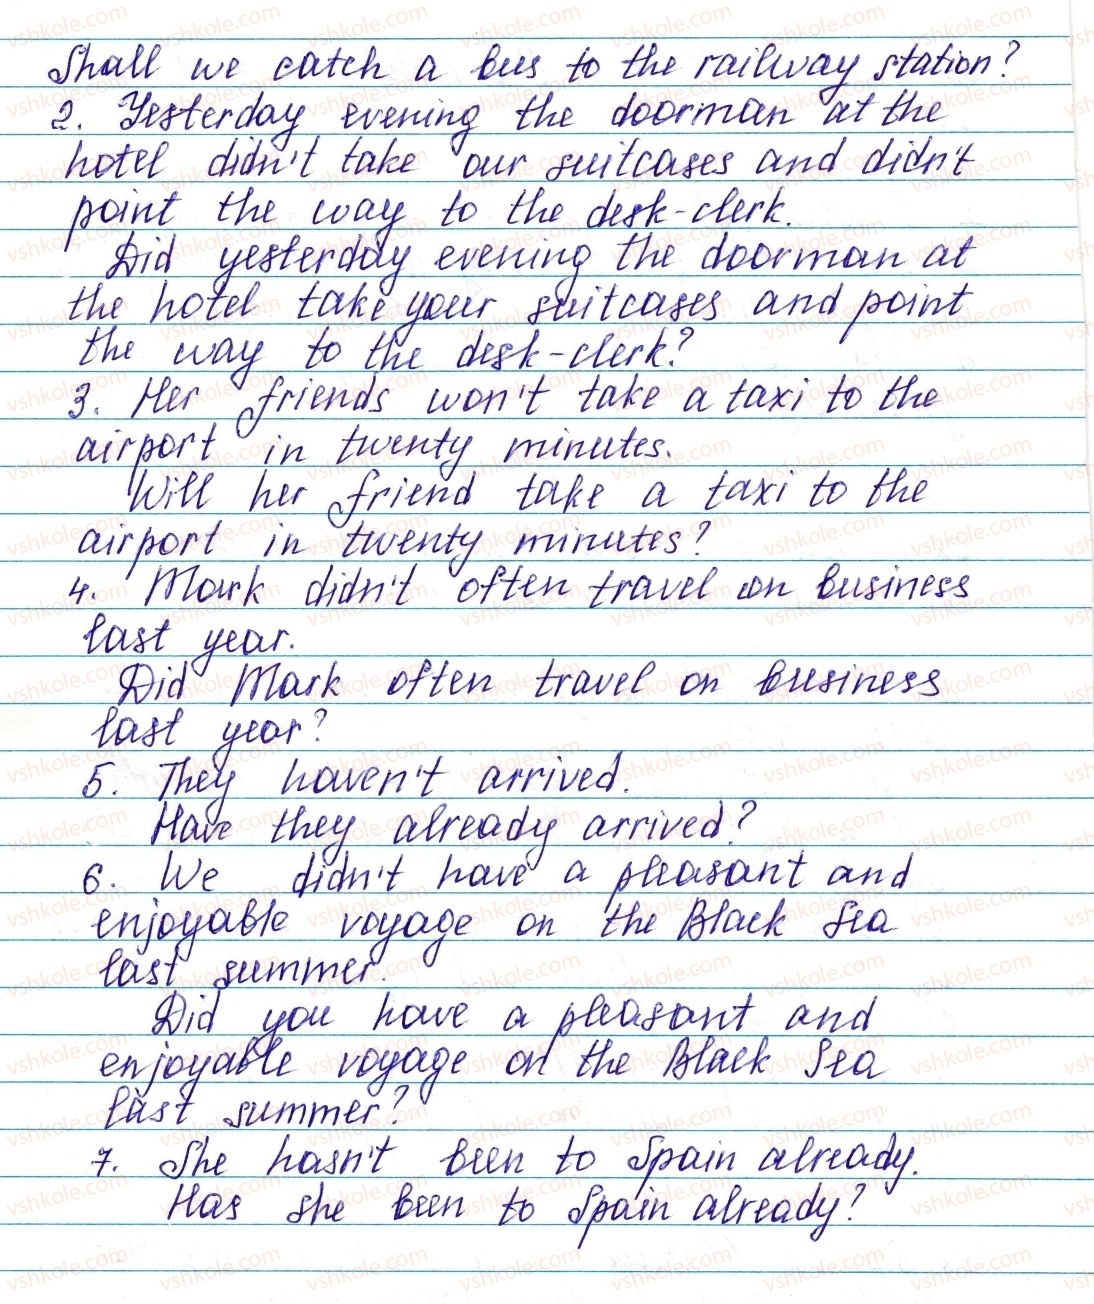 Shall we catch a bus to the railway station?
2. Yesterday evening the doorman at the
hotel didn't take our suitcases and didn't
point the way to the desk-clerk.
Did yesterday evening the doorman at
the hotel take your suitcases and point
the way to the desk-clerk?
3. Her friends won't take a taxi to the
airport in twenty minutes.
Will her friend take a taxi to the
airport in twenty minutes?
4. Mark didn't often travel on business
last year.
Did Mark often travel on business
last year?
5. They haven't arrived.
Have they already arrived?
6. We didn't have a pleasant and
enjoyable voyage on the Black Sea
last summer.
Did you have a pleasant and
enjoyable voyage on the Black Sea
last summer?
7. She hasn't been to Spain already.
Has she been to Spain already?
vshkole.com